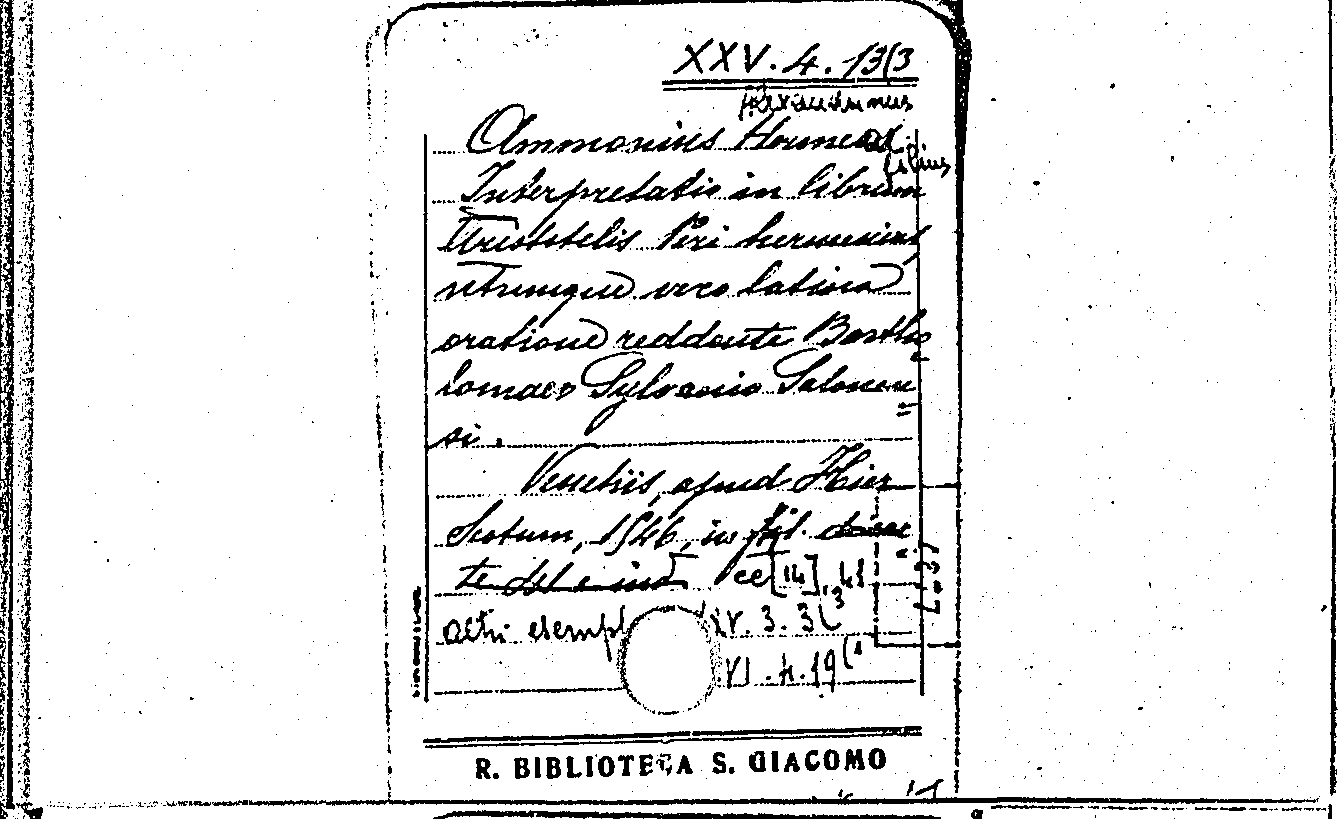 XXV. 4. 13(3
Ammonius Hermeae
filius
Interpretatio in librum
Aristotelis Peri hermenias,
utrumque vero latina
oratione reddente Bartho
lomaeo Sylvanio Salonen
si.
Venetiis, apud Hier
Scotum, 1546, in fol.
cc [14], 41
altri esempl V. 3. 3(3
VI. 4. 19(1
R. BIBLIOTECA S. GIACOMO